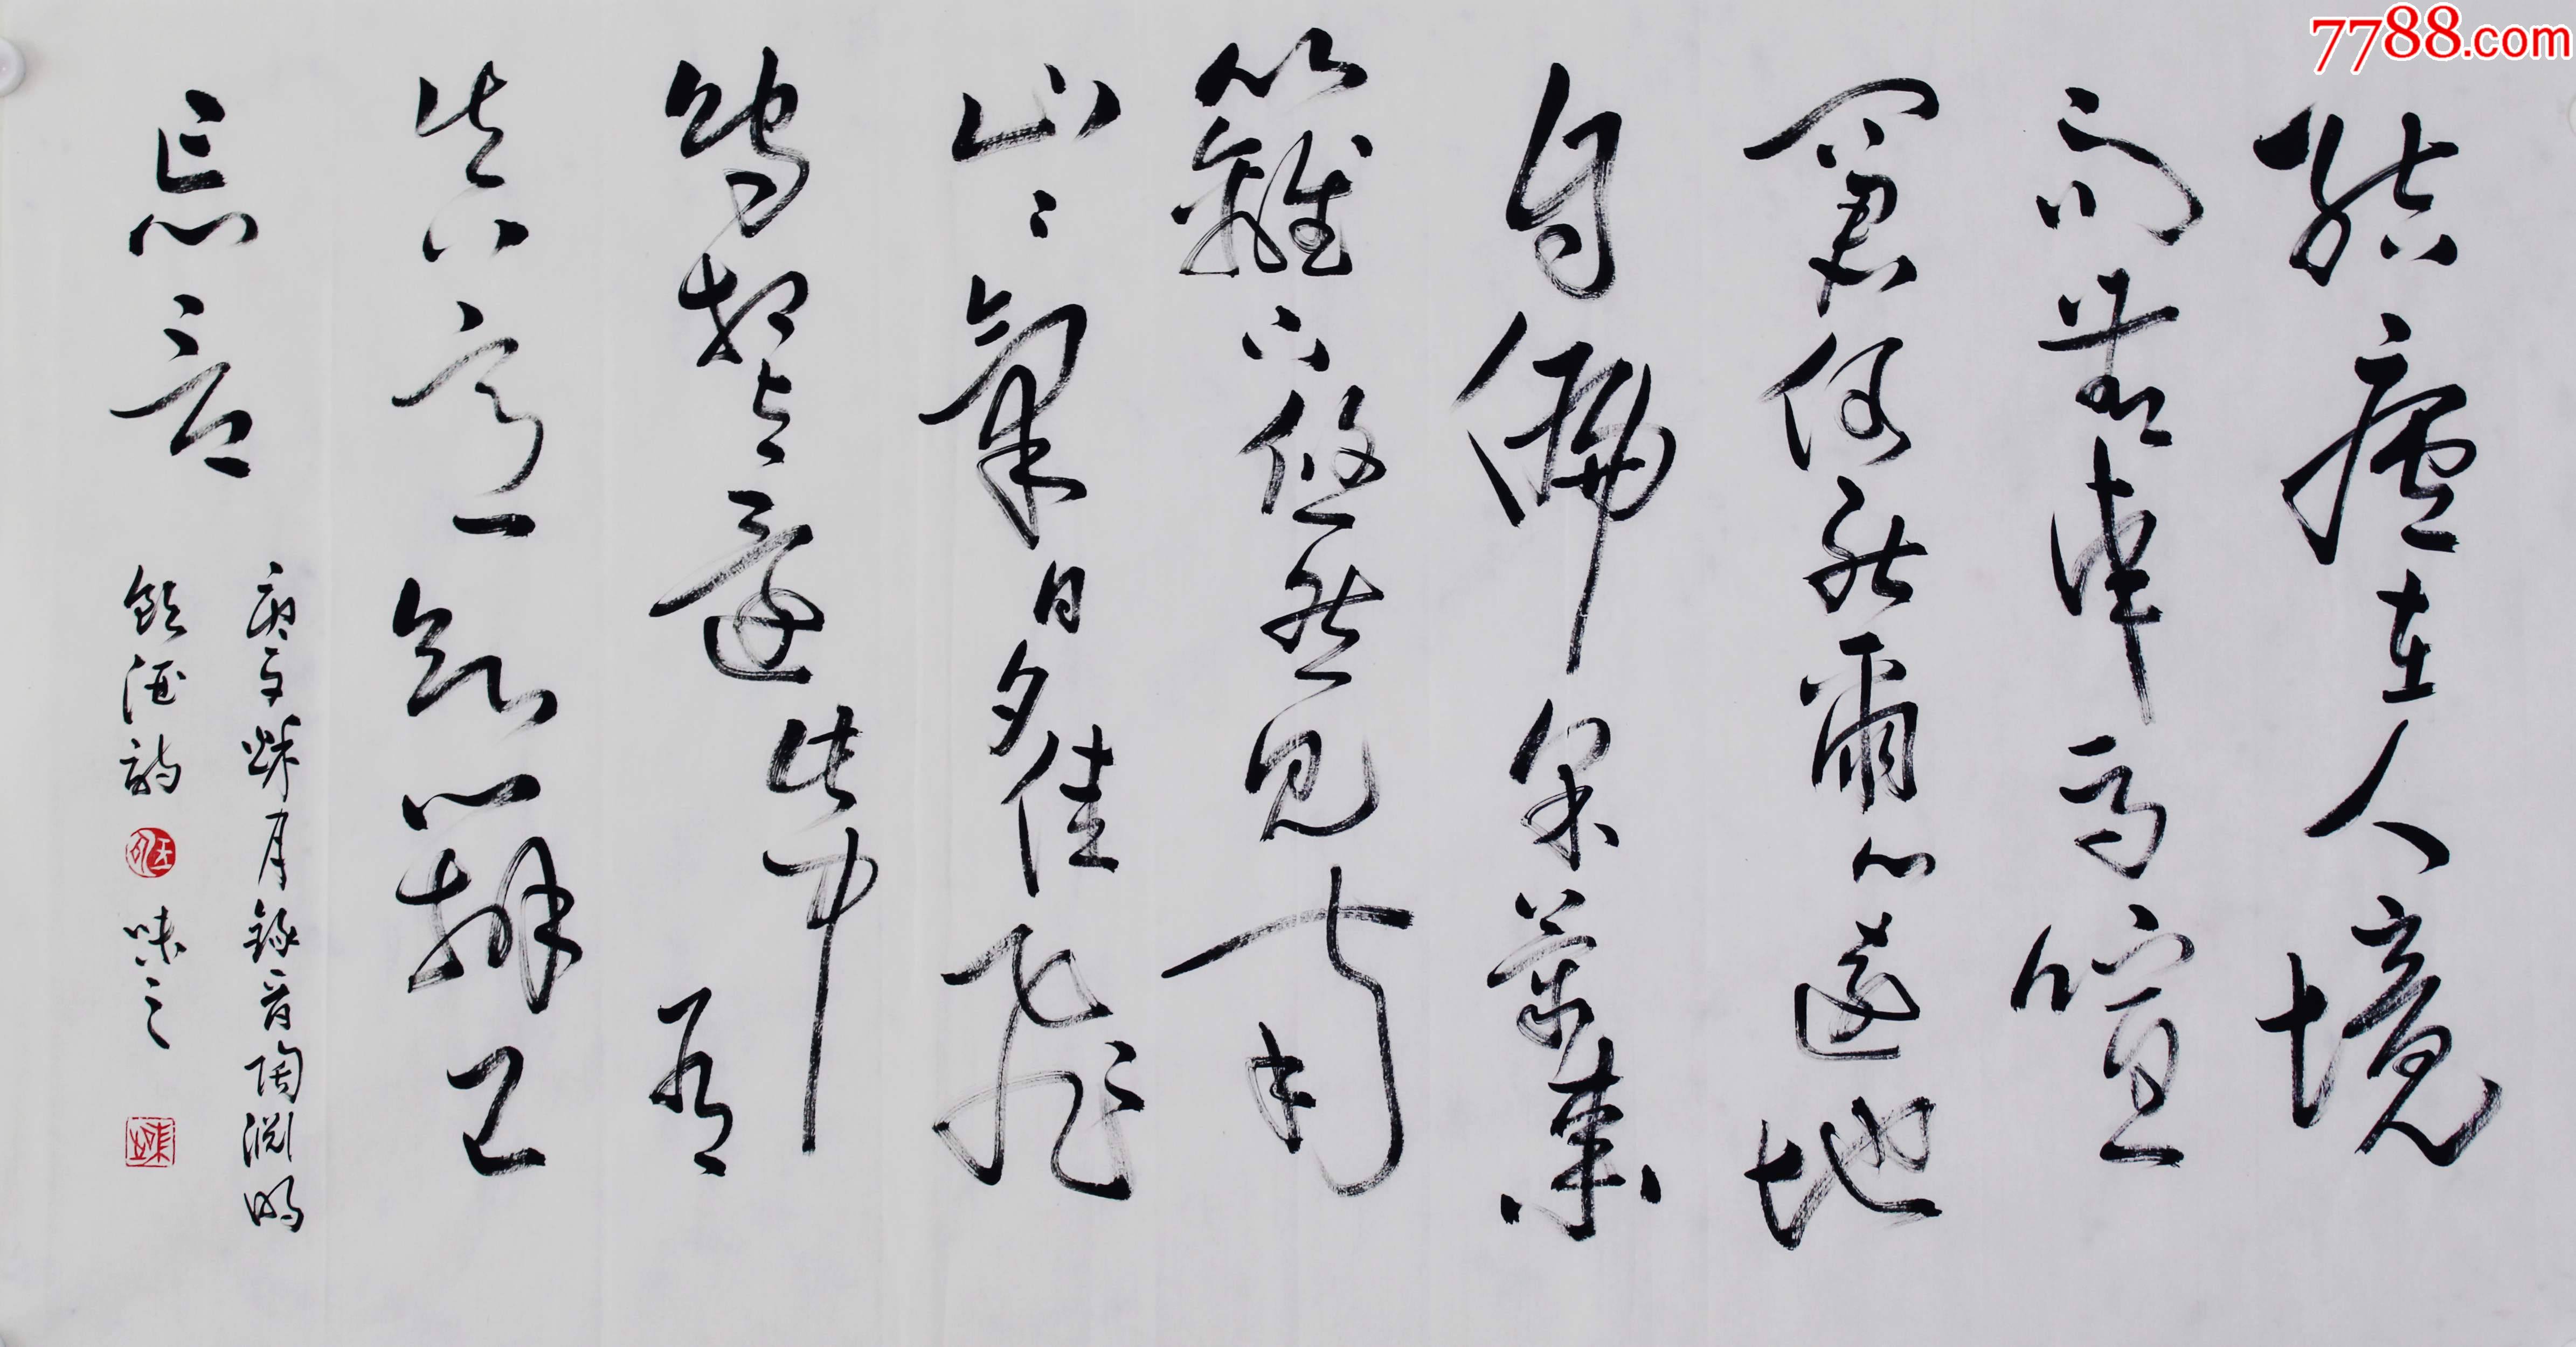 7788.com
結廬在人境
而無車馬喧
問君何能爾心遠地
自偏采菊東
籬下悠然見南
山〻氣日夕佳飛
鳥相與還此中有
真意欲辨已
忘言
庚子秋月錄晉陶淵明
飲酒詩 味之